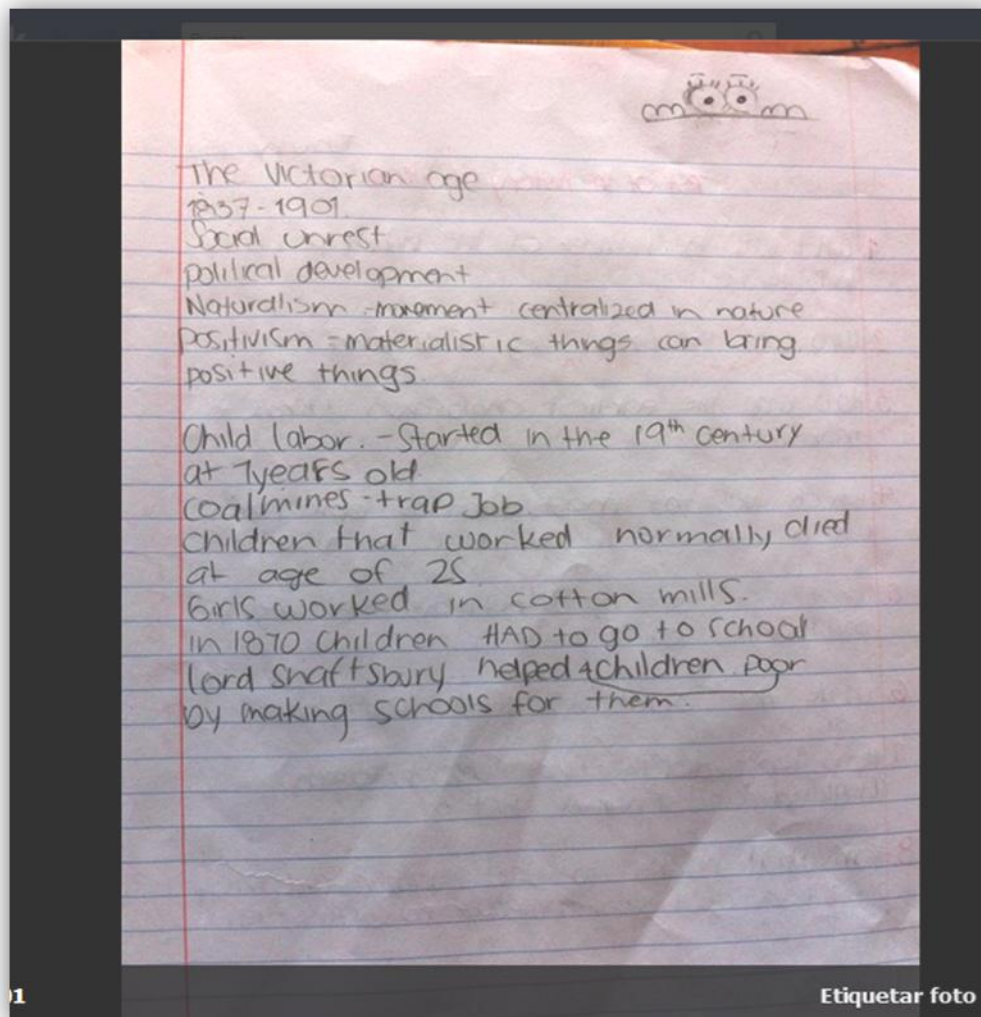 The Victorian age
1837-1901.
Social unrest
political development
Naturalism -movement centralized in nature
positivism = materialistic things can bring
positive things.
Child labor. - Started in the 19th century
at 7years old
coalmines - trap Job
children that worked normally died
at age of 25
Girls worked in cotton mills.
in 1870 children HAD to go to school
lord Shaftsbury helped children poor
by making schools for them.
01
Etiquetar foto